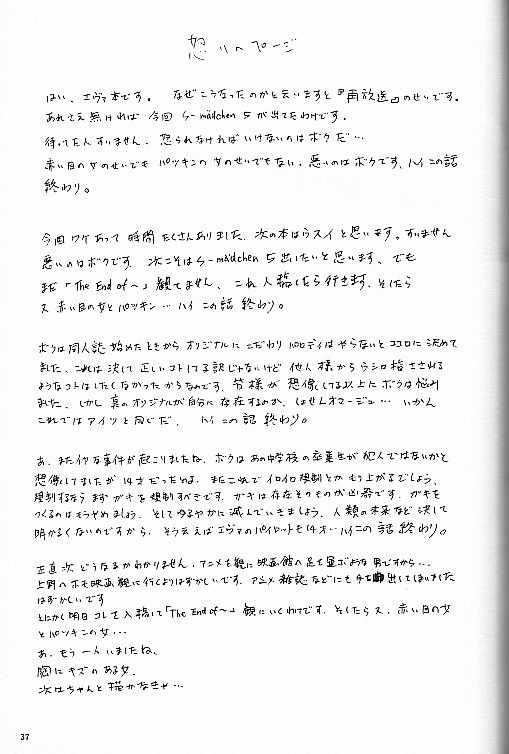 怒りのページ
はい、エヴァ本です。 なぜこうなったのかと云いますと『再放送』のせいです。
あれさえ無ければ 今回 S-mädchen 5 が出てたわけです。
待ってた人すいません、怒られなければいけないのはボクだ…
赤い目の女のせいでも パツキンの女のせいでもない、悪いのはボクです、ハイ この話
終わり。
今回ワケあって 時間たくさんありました、次の本はうスイと思います。すいません
悪いのはボクです、次こそは S-mädchen 5 出したいと思います、でも
まだ「The End of〜」観てません、これ入稿したら行きます、そしたら
又 赤い目の女とパツキン… ハイ この話 終わり。
ボクは同人誌 始めたときから オリジナルに こだわり パロディは やらないと ココロに 決めて
ました、これは 決して 正しいコトしてる訳じゃないけど 他人様から うしロ指さされる
ようなコトはしたくなかったからなのです、皆様が 想像してる以上に ボクは悩み
ました、しかし 真のオリジナルが自分に 存在するのか、しょせんオマージュ… いかん
これではアイツと同じだ、 ハイ この話 終わり。
あ、また イヤな事件が起こりましたね、ボクは あの中学校の卒業生が 犯人ではないかと
想像してましたが 14才だったとは、またこれで イロイロ規制とか もり上がるでしょう、
規制するなら まず ガキを 規制すべきです、ガキは存在そのものが凶器です、ガキを
つくるのは もうやめましょう、そして ゆるやかに 滅んでいきましょう、人類の未来など 決して
明かるくないのですから、そう云えば エヴァのパイロットも14才…ハイ この話 終わり。
正直 次 どうなるか わかりません、アニメを観に 映画館へ 足を運ぶような 男ですから…
上野へ ホモ映画 観に行くより はずかしいです、アニメ雑誌 などにも 手を出してしまいました
はずかしいです
とにかく明日 コレを 入稿して「The End of〜」観にいくわけです、そしたら 又、赤い目の女
とパツキンの女…
あ、もう一人いましたね、
胸に キズの ある女、
次はちゃんと 描かなきゃ…
37